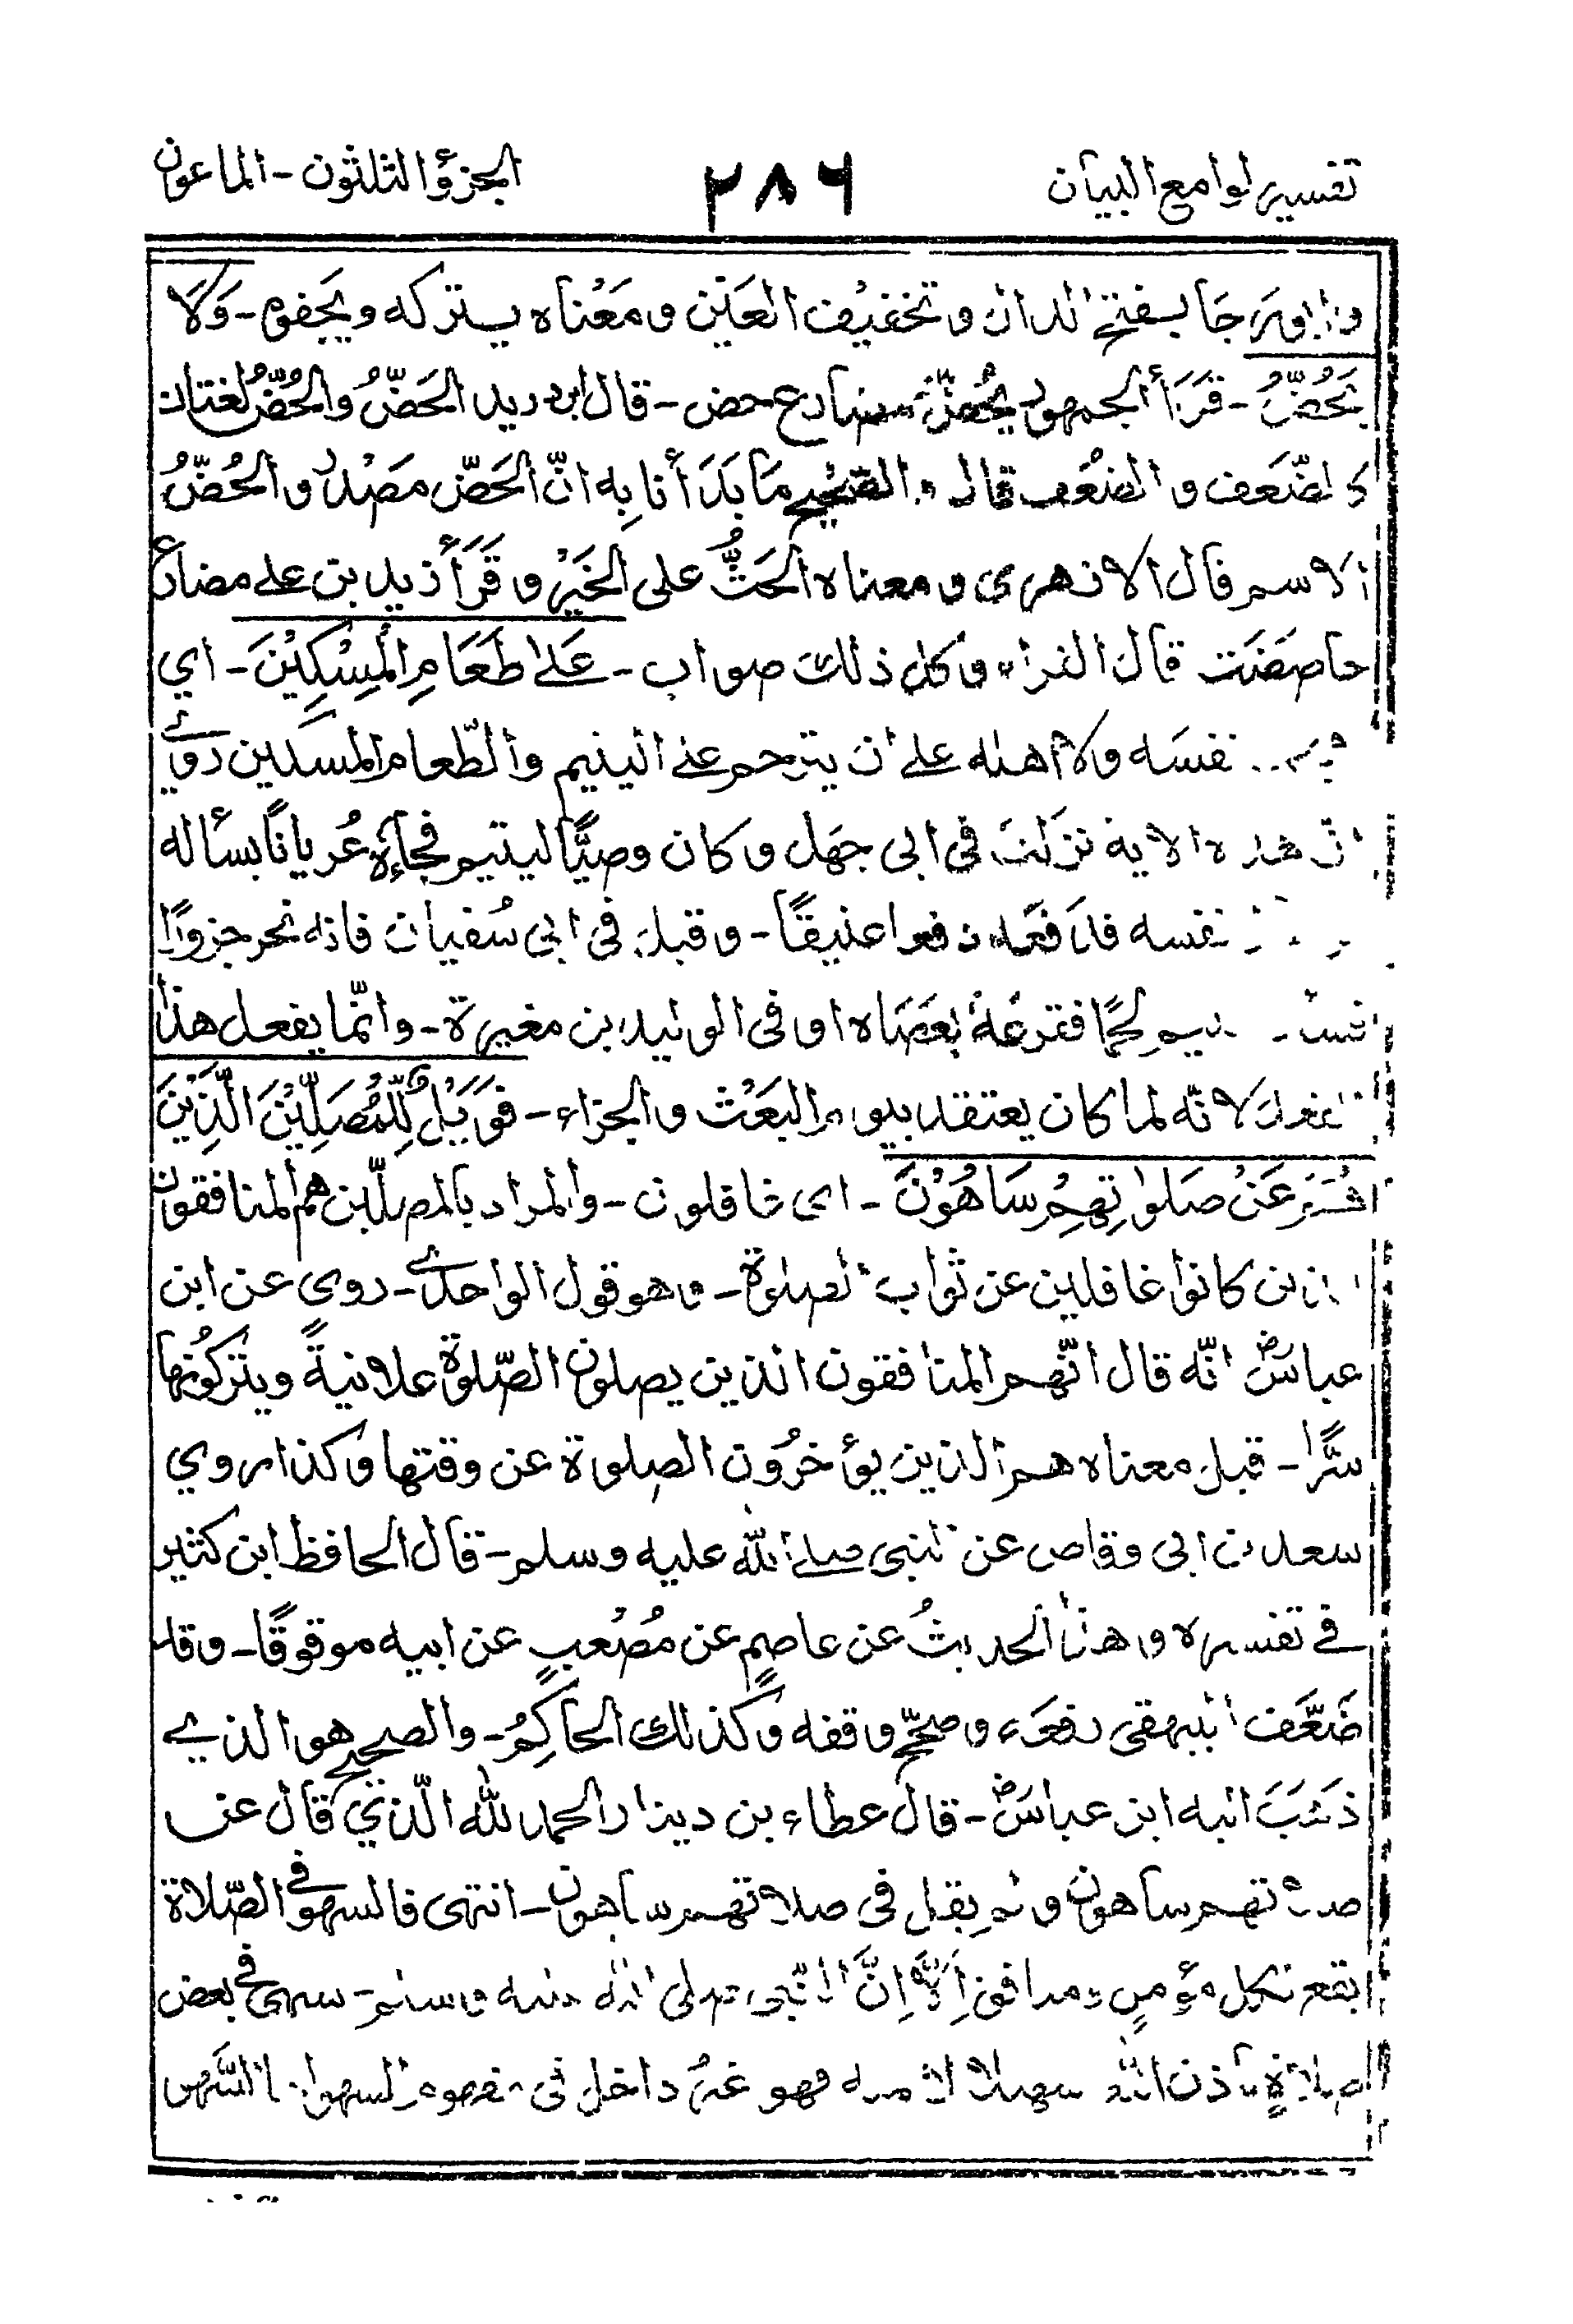 تفسير لوامع البيان ٢٨٦ الجزؤ الثلثون - الماعون
وابو رجا بفتح الدال وتخفيف العَيْن ومَعْناه يتركه ويجفوه - وَلَا
يَحُضُّ - قَرَأَ الجمهور يَحُضُّ مضارع حض - قال ابن دريد الحَضُّ والحُضُّ لغتان
كالضَّعف والضُّعف قال والصَّحِيح مَا بَدَأنا بِه انّ الحَضّ مصْدر والحُضُّ
الاسم قال الازهرى ومعناه الحَثُّ على الخَيْرِ وقَرَأ زيد بن على مضارع
حاضضت قال الفراء وكل ذلك صواب - عَلىٰ طَعَامِ الْمِسْكِيْنَ - اي
نفسَه ولا أهله على ان يترحم على اليتيم والطّعام المسكين رُوِيَ
انّ هذه الاية نزلَتْ فى ابى جهَل وكان وصيًّا ليتيم فجاءه عُرياناً يسأله
نفسه فدَفَعَه دفعا عنيفًا - وقيل فى ابى سُفيان فانه نحر جزورًا
لحمًا فقرعَهُ بعَصَاه او فى الوليد ابن مغيرة - وانّما يفعل هذا
الفعل لانّه لما كان يعتقد بيوم البعَثْ والجزاء - فَوَيْلٌ لِّلْمُصَلِّيْنَ الَّذِيْنَ
هُمْ عَنْ صَلوٰتِهِمْ سَاهُوْنَ - اى غافلون - والمراد بالمصلّين هم المنافقون
الذين كانوا غافلين عن ثواب الصلوٰة - وهو قول الواحدى - روى عن ابن
عباسؓ انّه قال انّهم المنافقون الذين يصلون الصّلوٰة علانيةً ويتركُونها
سرًّا - قيل معناه هم الذين يؤخرُون الصلوة عن وقتها وكذا روي
سعد بن ابى وقاص عن النبى صلى الله عليه وسلم - قال الحافظ ابن كثير
فى تفسيره وهذا الحديثُ عن عاصمٍ عن مُصْعبٍ عن ابيه موقوفًا - وقد
ضَعَّف البيهقى رفعَه وصحّح وقفه وكذلك الحاكِمُ - والصحيح هو الذي
ذَهَبَ اليه ابن عباسؓ - قال عطاء بن دينار الحمد لله الّذي قال عن
صلاتهم ساهون ولم يقل فى صلاتهم ساهون - انتهى فالسهو فى الصّلاة
يقع لكل مؤمنٍ ومنافق اَلَا اِنَّ النّبى صلى الله عليه وسلم - سهى فى بعض
صلاةٍ باذن الله سهلا لامته فهو غيرُ داخل فى مفهوم السهو